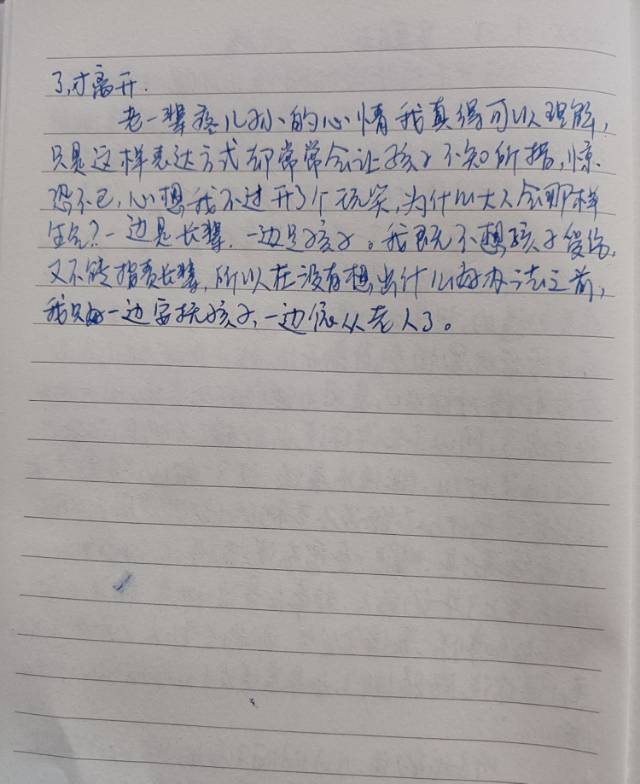 了,才离开.
老一辈疼儿孙的心情我真得可以理解,
只是这样表达方式却常常会让孩子不知所措,惊
恐不已,心想我不过开了个玩笑,为什么大人会那样
生气?一边是长辈,一边是孩子。我既不想孩子受伤,
又不能指责长辈,所以在没有想出什么好办法之前,
我只好一边安抚孩子,一边依从老人了。